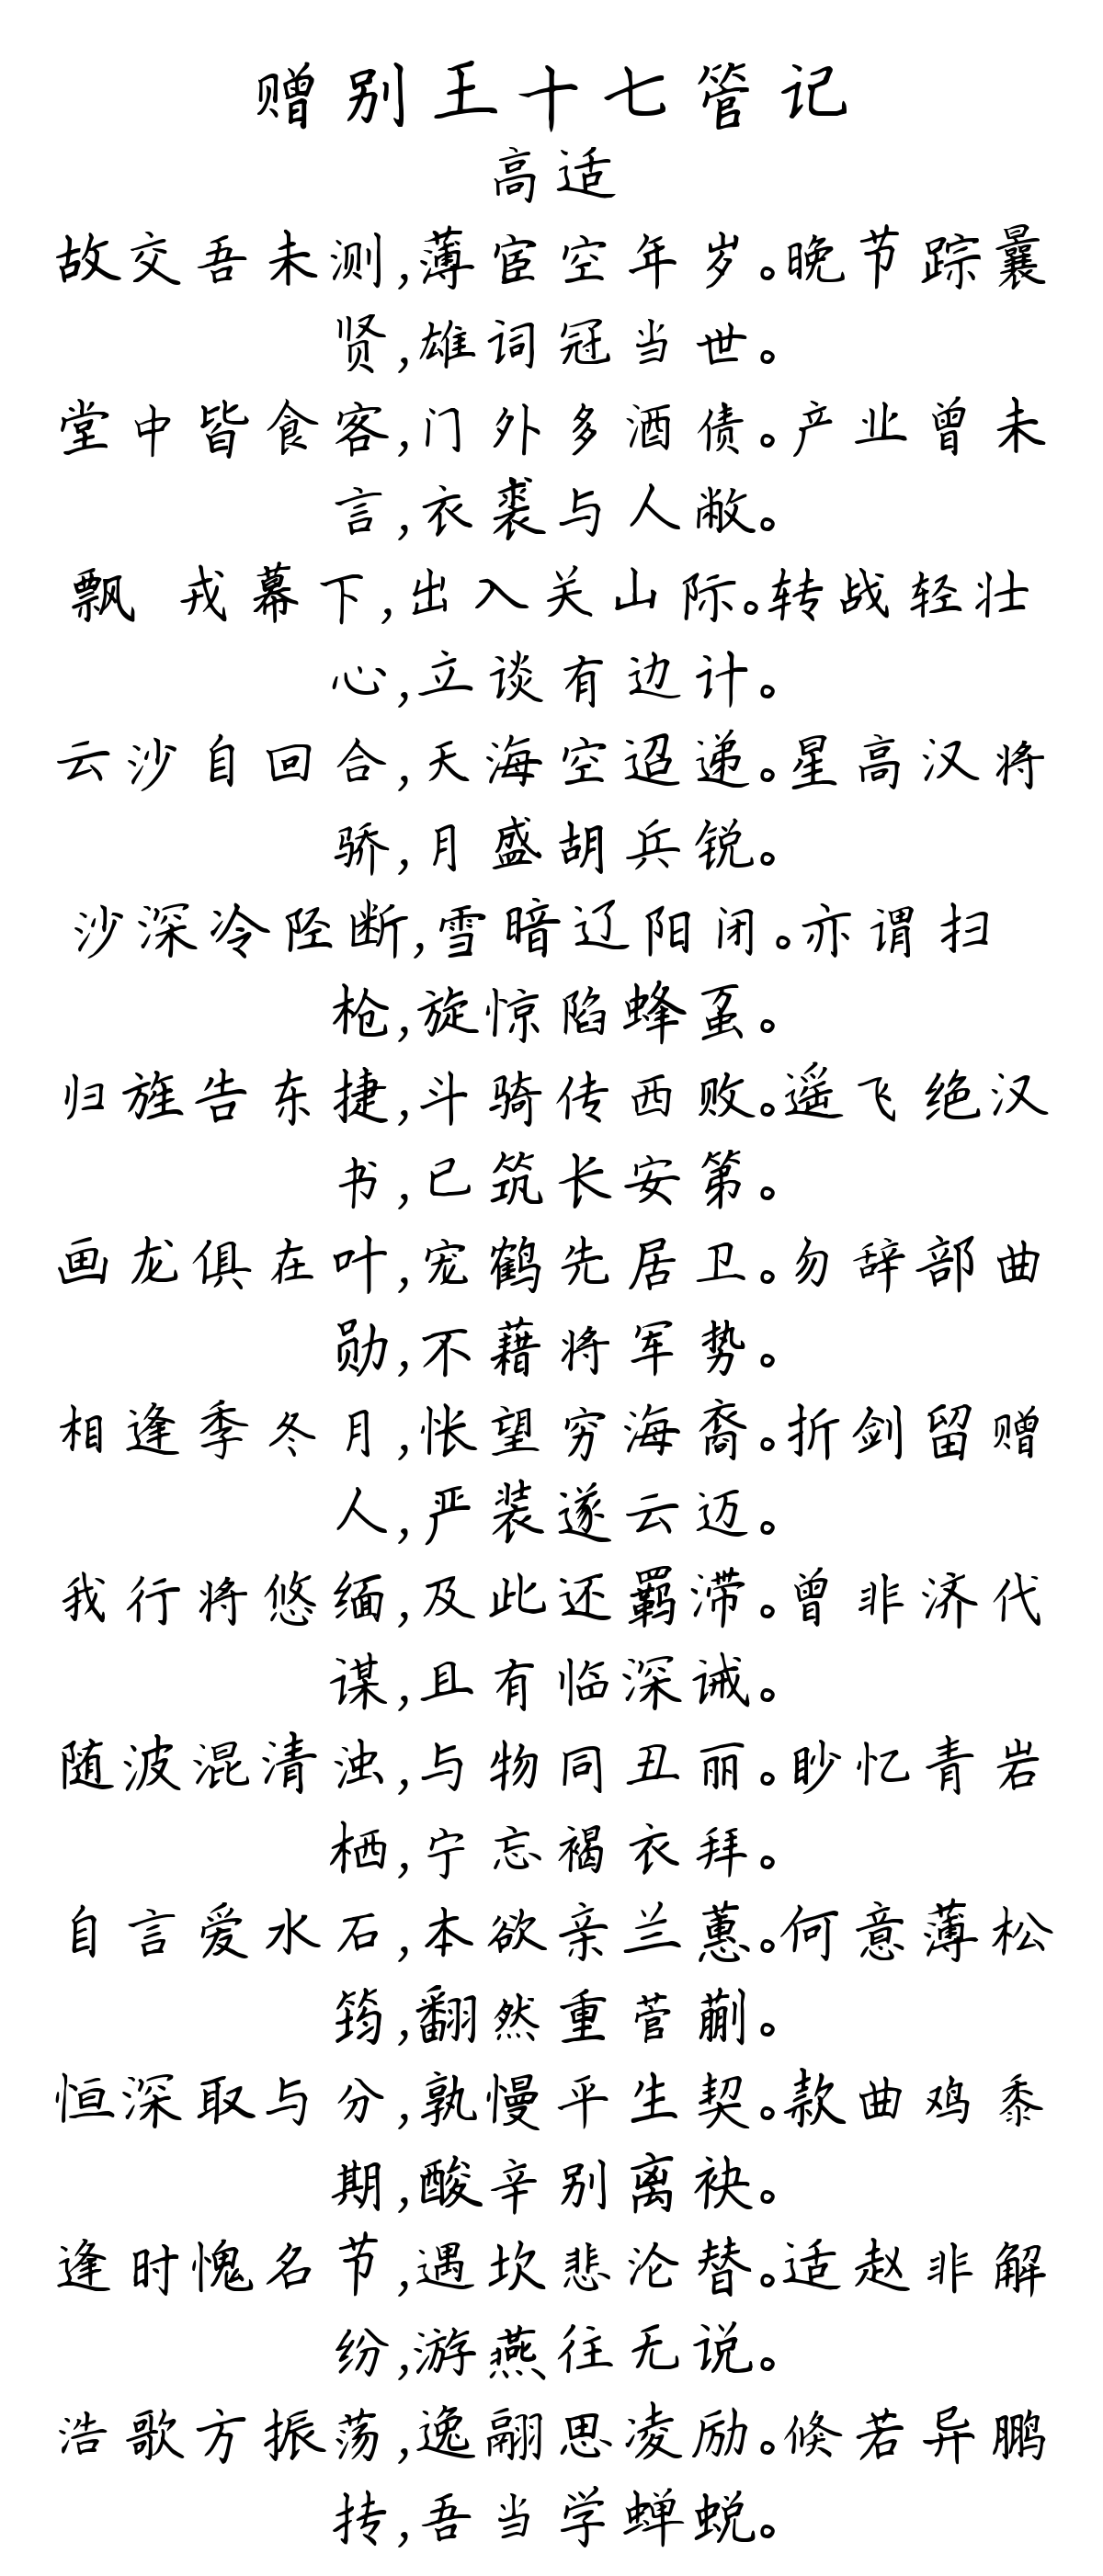 赠别王十七管记
高适
故交吾未测,薄宦空年岁。晚节踪曩
贤,雄词冠当世。
堂中皆食客,门外多酒债。产业曾未
言,衣裘与人敝。
飘 戎幕下,出入关山际。转战轻壮
心,立谈有边计。
云沙自回合,天海空迢递。星高汉将
骄,月盛胡兵锐。
沙深冷陉断,雪暗辽阳闭。亦谓扫
枪,旋惊陷蜂虿。
归旌告东捷,斗骑传西败。遥飞绝汉
书,已筑长安第。
画龙俱在叶,宠鹤先居卫。勿辞部曲
勋,不藉将军势。
相逢季冬月,怅望穷海裔。折剑留赠
人,严装遂云迈。
我行将悠缅,及此还羁滞。曾非济代
谋,且有临深诫。
随波混清浊,与物同丑丽。眇忆青岩
栖,宁忘褐衣拜。
自言爱水石,本欲亲兰蕙。何意薄松
筠,翻然重菅蒯。
恒深取与分,孰慢平生契。款曲鸡黍
期,酸辛别离袂。
逢时愧名节,遇坎悲沦替。适赵非解
纷,游燕往无说。
浩歌方振荡,逸翮思凌励。倏若异鹏
抟,吾当学蝉蜕。